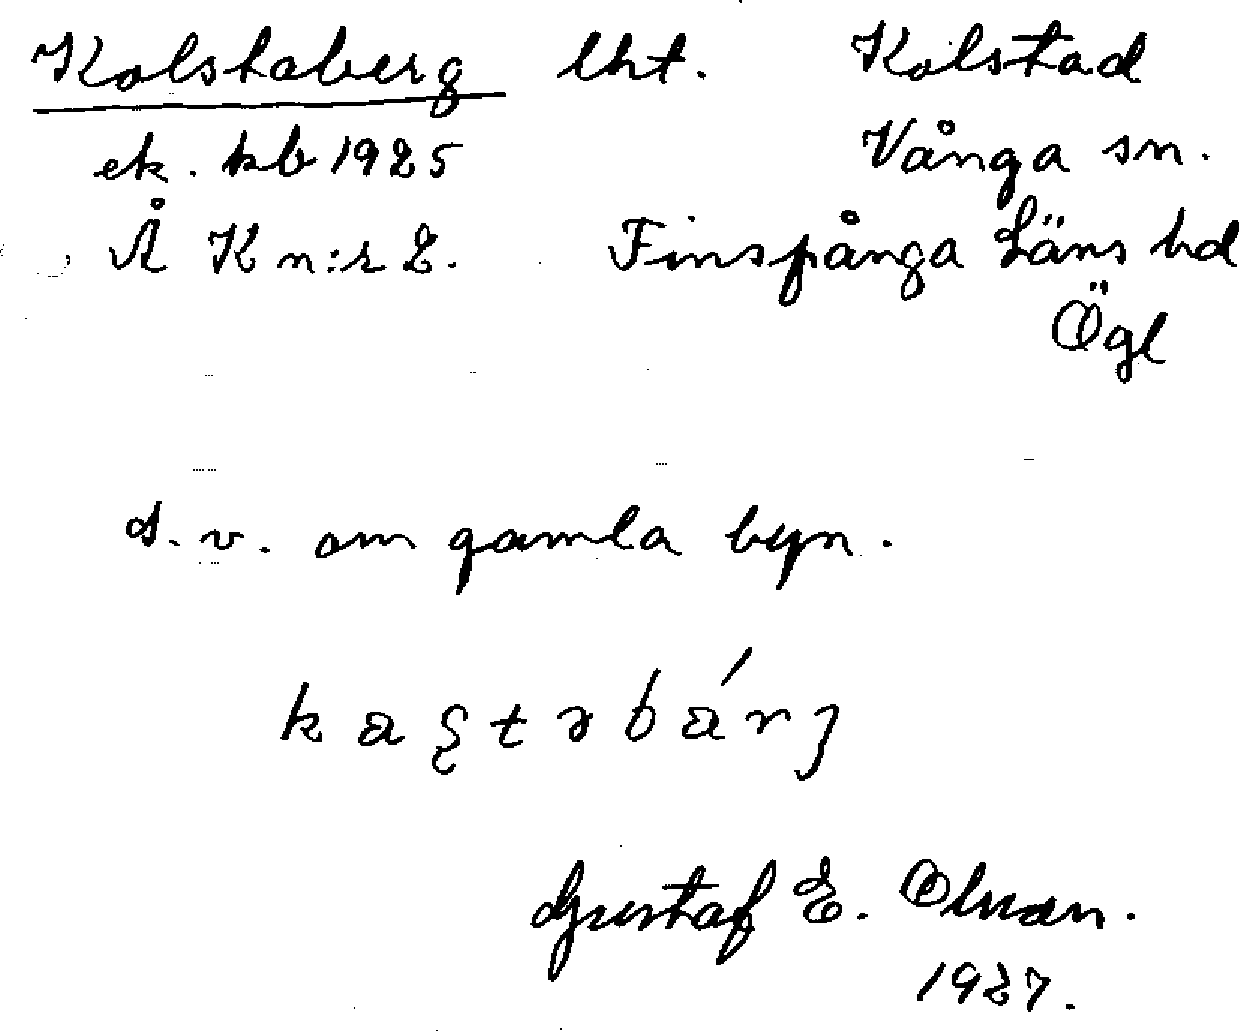 Kolstaberg lht. Kolstad
ek. kb 1925 Vånga sn.
Å K n:r 2. Finspånga Läns hd
Ögl
d. v. om gamla byn.
Gustaf E. Olvan.
1927.